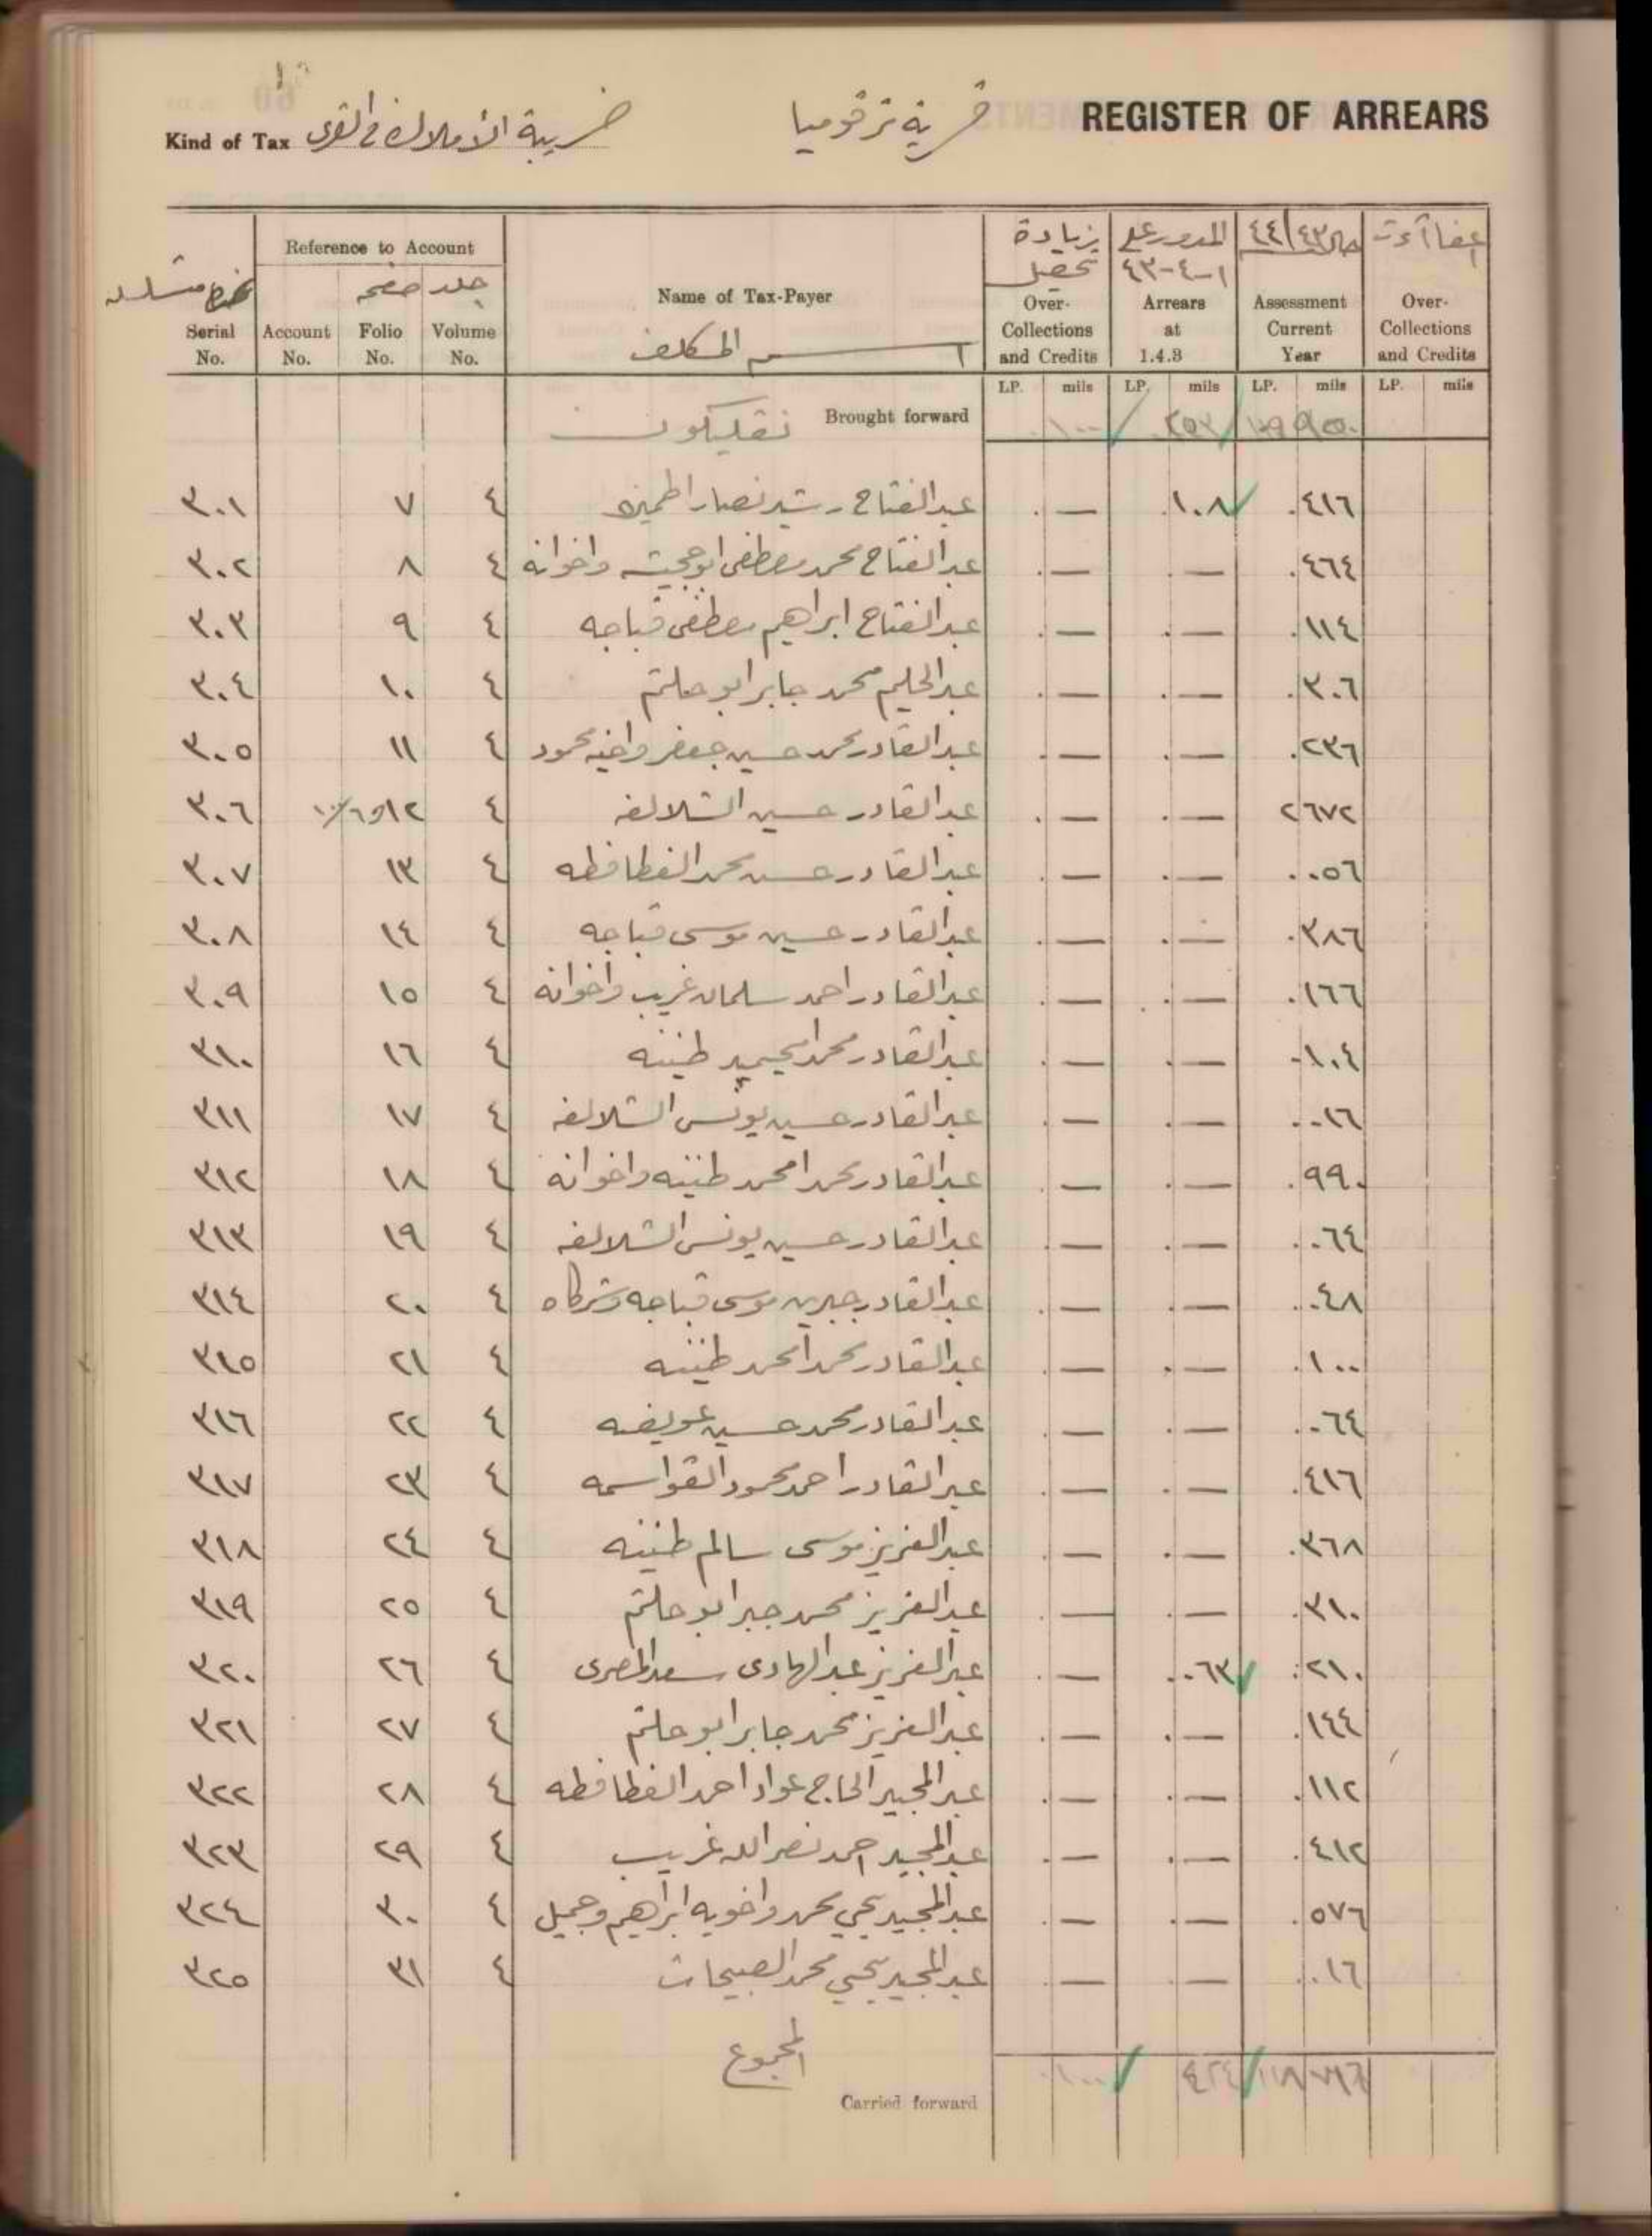 REGISTER OF ARREARS
قرية ترقوميا
Kind of Tax ضريبة الأملاك في القرى
Reference to Account
جلد صفحه
Serial No. Account No. Folio No. Volume No.
Name of Tax-Payer
اسم المكلف
زيادة تحصيل
Over-Collections and Credits
المدور على ١-٤-٤٣
Arrears at 1.4.3
٤٤/٤٣
Assessment Current Year
Over-Collections and Credits
LP. mils LP. mils LP. mils LP. mils
Brought forward
٣٠١ ٧ ٤ عبدالفتاح رشيد نصار — .١٠٨ .٤١٦
٣٠٢ ٨ ٤ عبدالفتاح محمد مصطفى واخوانه .— .— .٤٦٤
٣٠٣ ٩ ٤ عبدالفتاح ابراهيم مصطفى قباجه .— .— .١١٤
٣٠٤ ١٠ ٤ عبدالحليم محمد جابر ابو حلتم .— .— .٣٠٦
٣٠٥ ١١ ٤ عبدالقادر محمد حسين جعفر واخيه محمود .— .— .٢٣٦
٣٠٦ ١٢ ٤ عبدالقادر حسين الشلالفه .— .— ٢٦٧٢
٣٠٧ ١٣ ٤ عبدالقادر حسين محمد الفطافطه .— .— .٠٥٦
٣٠٨ ١٤ ٤ عبدالقادر حسين موسى قباجه .— .— .٣٨٦
٣٠٩ ١٥ ٤ عبدالقادر احمد سلمان غريب واخوانه .— .— .١٦٦
٣١٠ ١٦ ٤ عبدالقادر محمد طنينه .— .— .١٠٤
٣١١ ١٧ ٤ عبدالقادر حسين يونس الشلالفه .— .— .٠١٦
٣١٢ ١٨ ٤ عبدالقادر محمد امحمد طنينه واخوانه .— .— .٩٩٠
٣١٣ ١٩ ٤ عبدالقادر حسين يونس الشلالفه .— .— .٠٦٤
٣١٤ ٢٠ ٤ عبدالقادر جبرين موسى قباجه وشركاه .— .— .٠٤٨
٣١٥ ٢١ ٤ عبدالقادر محمد امحمد طنينه .— .— .١٠٠
٣١٦ ٢٢ ٤ عبدالقادر محمد حسين عويضه .— .— .٠٦٤
٣١٧ ٢٣ ٤ عبدالقادر احمد محمود القواسمه .— .— .٤١٦
٣١٨ ٢٤ ٤ عبدالعزيز موسى سالم طنينه .— .— .٣٦٨
٣١٩ ٢٥ ٤ عبدالعزيز محمد جبر ابو حلتم .— .— .٣١٠
٣٢٠ ٢٦ ٤ عبدالعزيز عبدالهادى سعد المصرى .— .٠٦٣ .٢١٠
٣٢١ ٢٧ ٤ عبدالعزيز محمد جابر ابو حلتم .— .— .١٤٤
٣٢٢ ٢٨ ٤ عبدالمجيد الحاج عواد احمد الفطافطه .— .— .١١٢
٣٢٣ ٢٩ ٤ عبدالمجيد احمد نصرالله غريب .— .— .٤١٢
٣٢٤ ٣٠ ٤ عبدالمجيد يحيى محمد واخويه ابراهيم وجميل .— .— .٥٧٦
٣٢٥ ٣١ ٤ عبدالمجيد يحيى محمد الصبيحات .— .— .٠١٦
المجموع
Carried forward .١٠٠ ٤٢٤